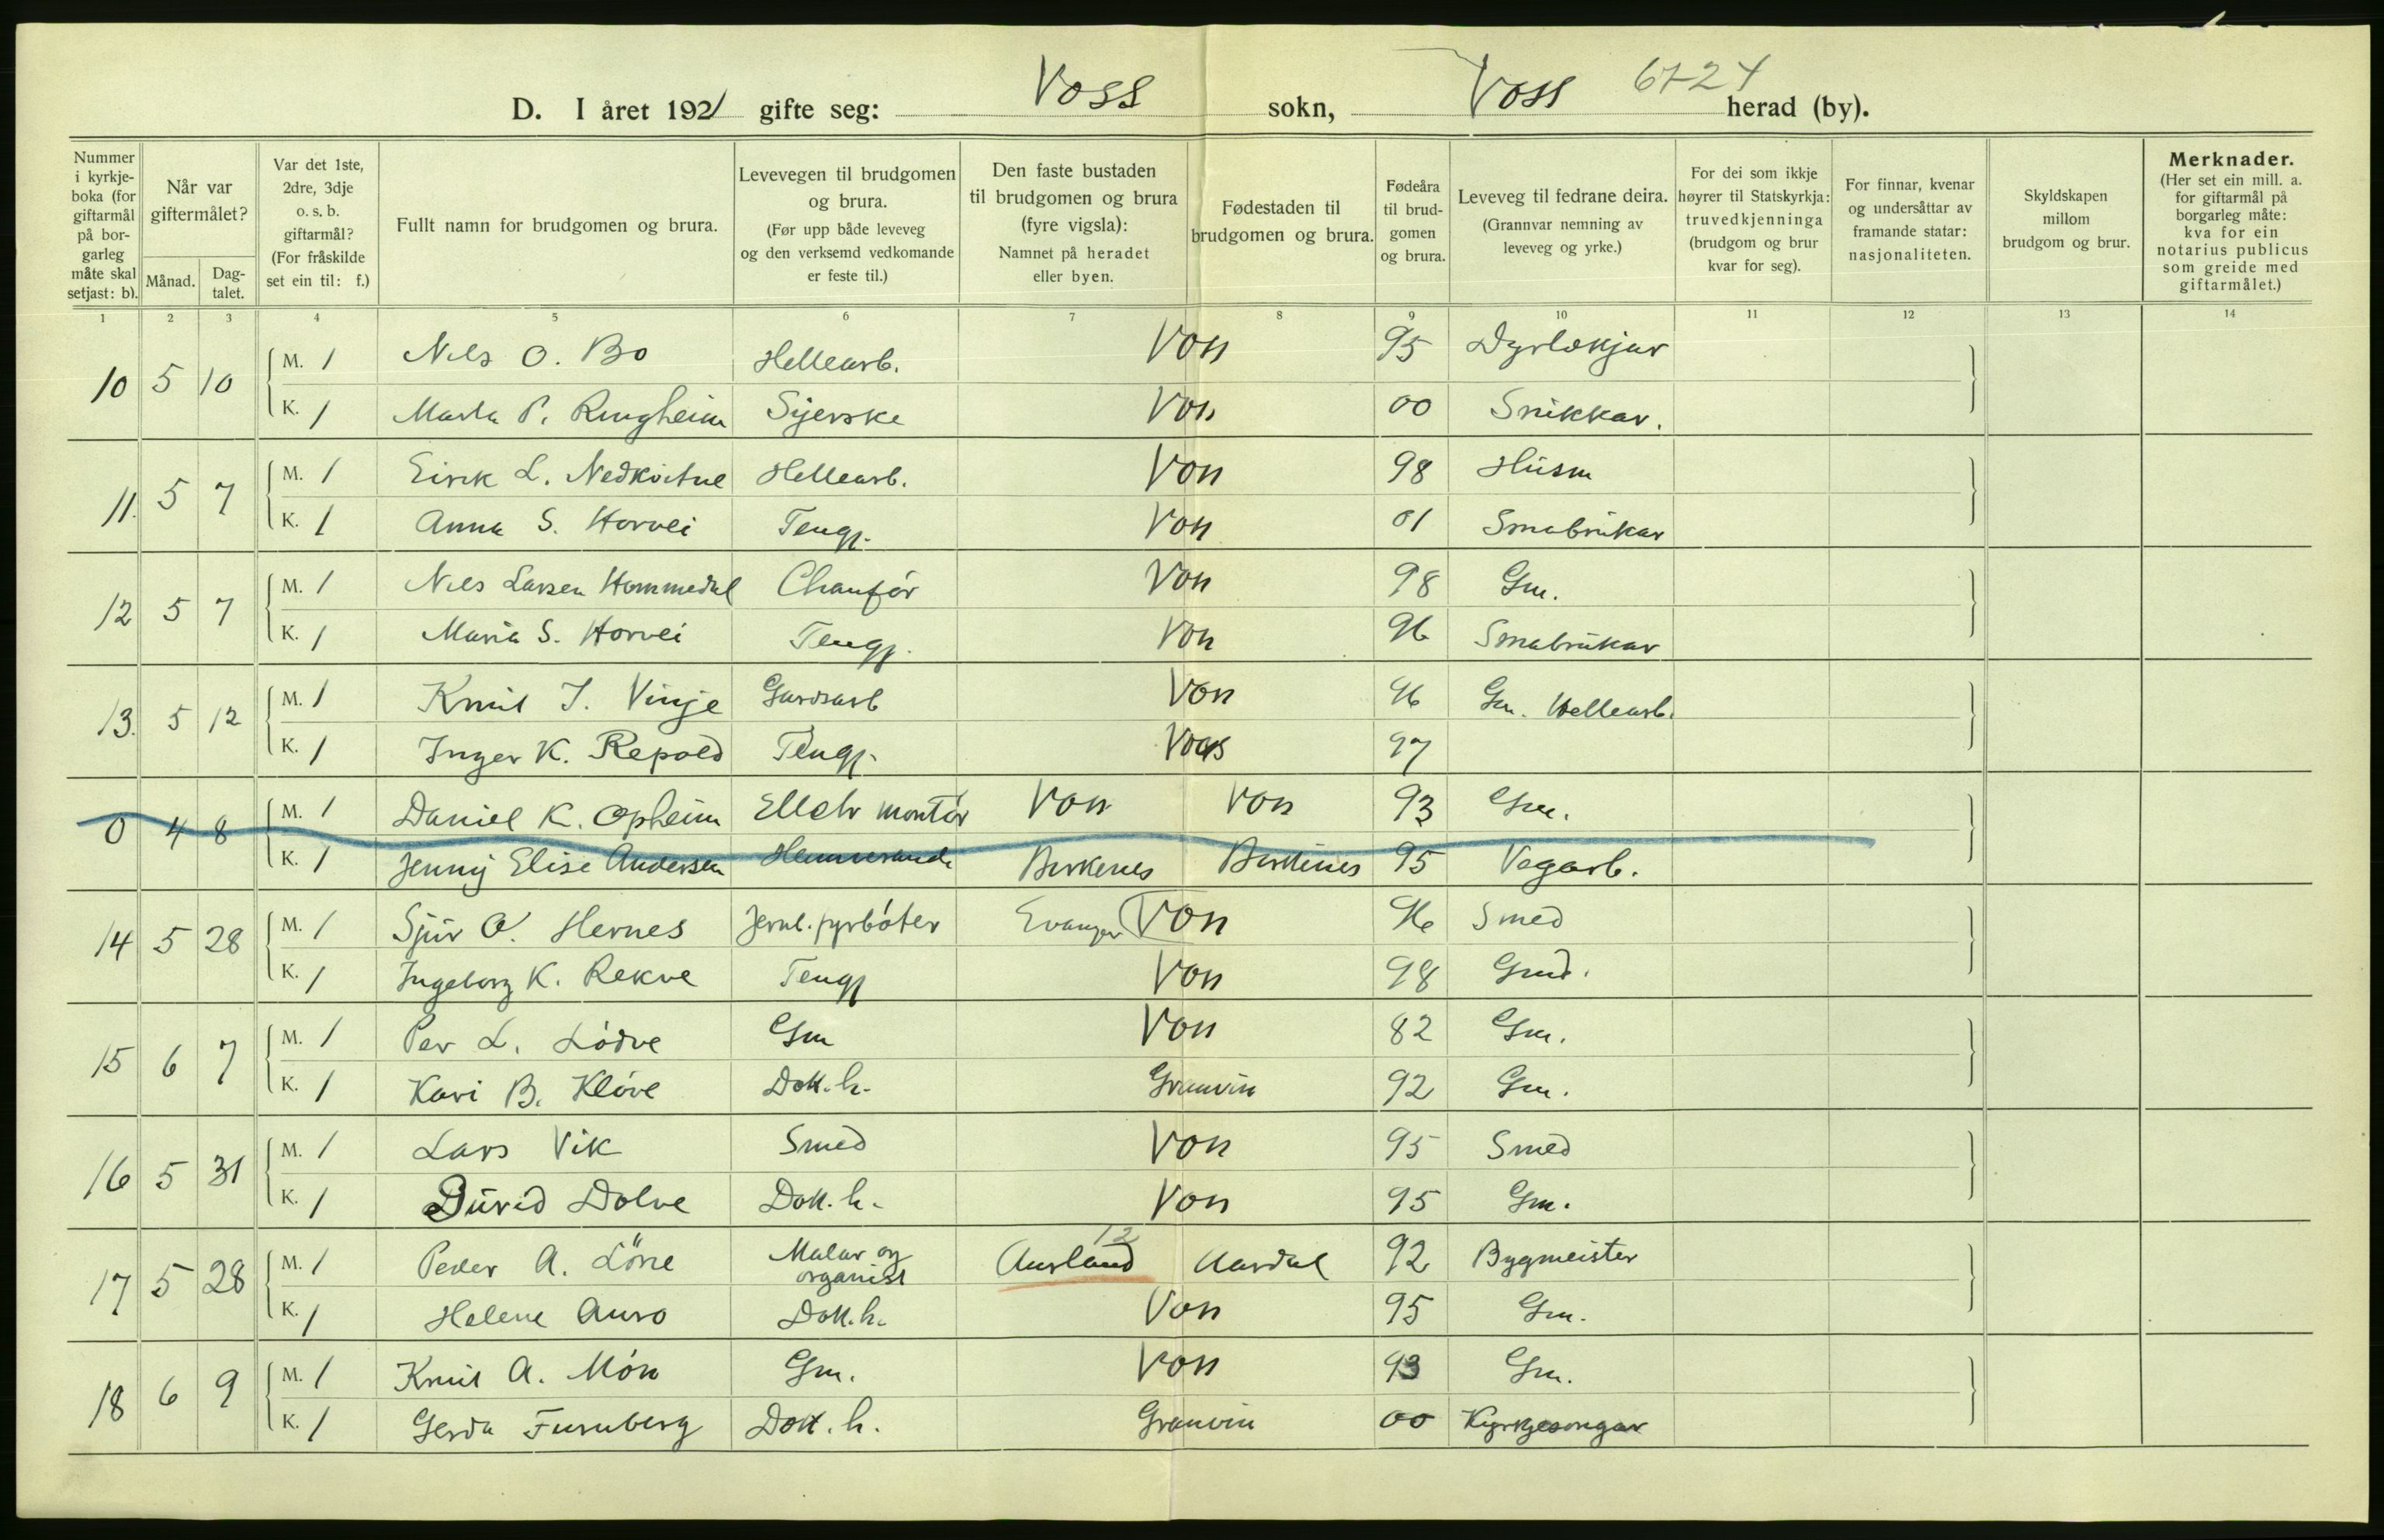 Voss Voss 67-24
D. I året 1921 gifte seg: sokn, herad (by).
Nummer i kyrkje-boka (for giftarmål på bor-garleg måte skal setjast: b).
Når var giftermålet?
Månad. Dag-talet.
Var det 1ste, 2dre, 3dje o. s. b. giftarmål? (For fråskilde set ein til: f.)
Fullt namn for brudgomen og brura.
Levevegen til brudgomen og brura. (Før upp både leveveg og den verksemd vedkomande er feste til.)
Den faste bustaden til brudgomen og brura (fyre vigsla): Namnet på heradet eller byen.
Fødestaden til brudgomen og brura.
Fødeåra til brud-gomen og brura.
Leveveg til fedrane deira. (Grannvar nemning av leveveg og yrke.)
For dei som ikkje høyrer til Statskyrkja: truvedkjenninga (brudgom og brur kvar for seg).
For finnar, kvenar og undersåttar av framande statar: nasjonaliteten.
Skyldskapen millom brudgom og brur.
Merknader. (Her set ein mill. a. for giftarmål på borgarleg måte: kva for ein notarius publicus som greide med giftarmålet.)
1 2 3 4 5 6 7 8 9 10 11 12 13 14
10 5 10 M. 1 Nels O. Bo Hellearb. Voss 95 Dyrlækjar
K. 1 Marta P. Ringheim Syerske Voss 00 Snikkar.
11. 5 7 M. 1 Eirik L. Nedkvitne Hellearb. Voss 98 Husm
K. 1 Anna S. Horvei Tengj. Voss 01 Smabrukar
12 5 7 M. 1 Nils Larsen Hommedal Chauför Voss 98 Gm.
K. 1 Maria S. Horvei Tengj. Voss 96 Smabrukar
13. 5 12 M. 1 Knut J. Vinje Gardsarb Voss 96 Gm. Hellearb.
K. 1 Inger K. Repold Tengj. Voss 97
0 4 8 M. 1 Daniel K. Opheim Elektr montör Voss Voss 93 Gm.
K. 1 Jenny Elise Andersen Birkenes Birkenes 95 Vegarb.
14 5 28 M. 1 Sjur O. Hernes Jernb. fyrböter Evanger Voss 96 Smed
K. 1 Ingeborg K. Rekve Tengj Voss 98 Gmd.
15 6 7 M. 1 Per L. Lödve Gm Voss 82 Gm.
K. 1 Kari B. Klöve Dott. h. Granvin 92 Gm.
16 5 31 M. 1 Lars Vik Smed Voss 95 Smed
K. 1 Durid Dolve Dott. h. Voss 95 Gm.
12
17 5 28 M. 1 Peder A. Löne Malar og organist Aurland Aardal 92 Bygmeister
K. 1 Helene Auro Dott. h. Voss 95 Gm.
18 6 9 M. 1 Knut A. Mön Gm. Voss 93 Gm.
K. 1 Gerda Furuberg Dott. h. Granvin 00 Kyrkjesongar